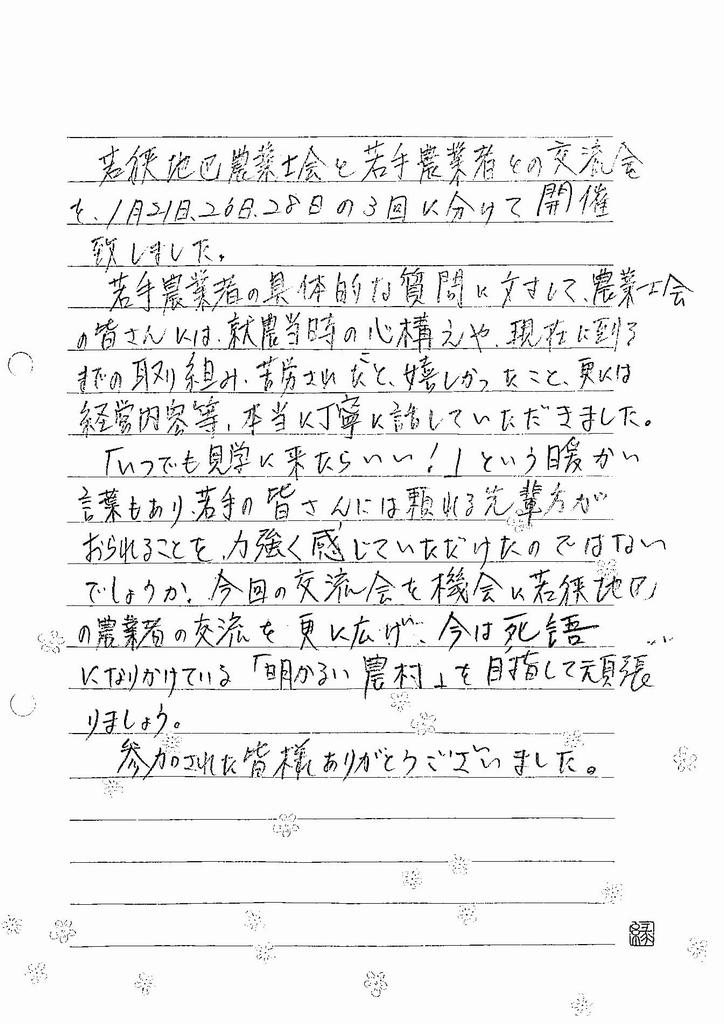 若狭地区農業士会と若手農業者との交流会
を、1月21日、26日、28日の3回に分けて開催
致しました。
若手農業者の具体的な質問に対して、農業士会
の皆さんには、就農当時の心構えや、現在に到る
までの取り組み、苦労されたこと、嬉しかったこと、更には
経営内容等、本当に丁寧に話していただきました。
「いつでも見学に来たらいい！」という暖かい
言葉もあり、若手の皆さんには頼れる先輩方が
おられることを、力強く感じていただけたのではない
でしょうか。今回の交流会を機会に若狭地区
の農業者の交流を更に広げ、今は死語
になりかけている「明かるい農村」を目指して頑張
りましょう。
参加された皆様ありがとうございました。
縁